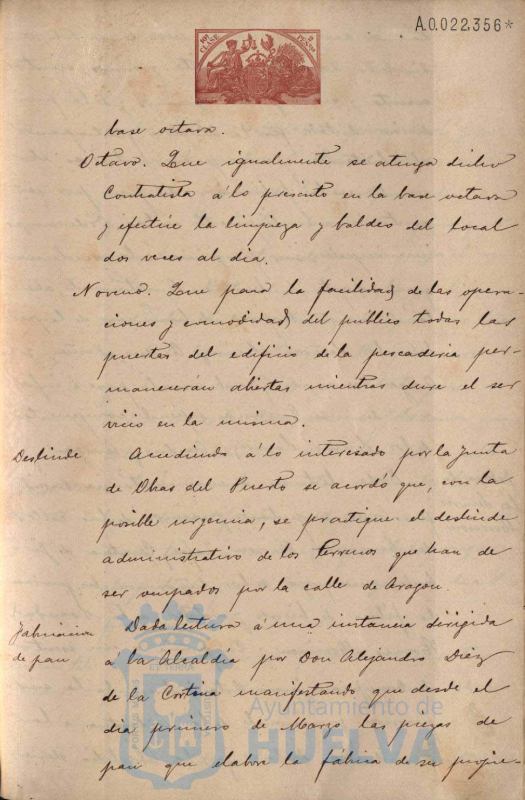 A.0.022.356*
10ª CLASE 2 PESETAS
base octava.
Octavo. Que igualmente se atenga dicho
Contratista á lo prescrito en la base octava
y efectúe la limpieza y baldeo del local
dos veces al dia.
Noveno. Que para la facilidad de las opera-
ciones y comodidad del público todas las
puertas del edificio de la pescaderia per-
manecerán abiertas mientras dure el ser
vicio en la misma.
Deslinde
Accediendo á lo interesado por la Junta
de Obras del Puerto se acordó que, con la
posible urgencia, se practique el deslinde
administrativo de los terrenos que han de
ser ocupados por la calle de Aragon.
Fabricacion
de pan
Dada lectura á una instancia dirigida
á la Alcaldía por Don Alejandro Diez
de la Cortina manifestando que desde el
dia primero de Marzo las piezas de
pan que elabore la fábrica de su propie-
Ayuntamiento de
HUELVA